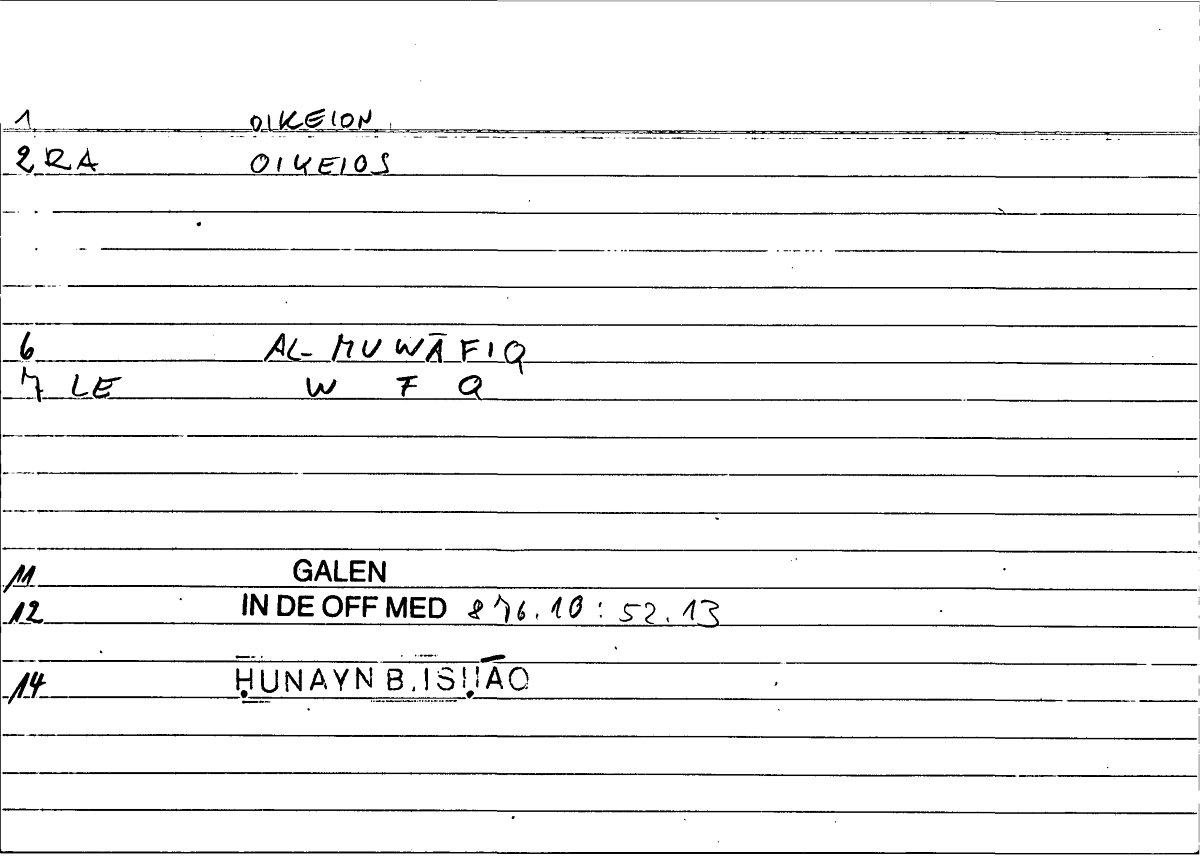 1 OIKEION
2 RA OIKEIOS
6 AL-MUWĀFIQ
7 LE W F Q
11 GALEN
12 IN DE OFF MED 876.10 : 52.13
14 ḤUNAYN B. ISḤĀQ